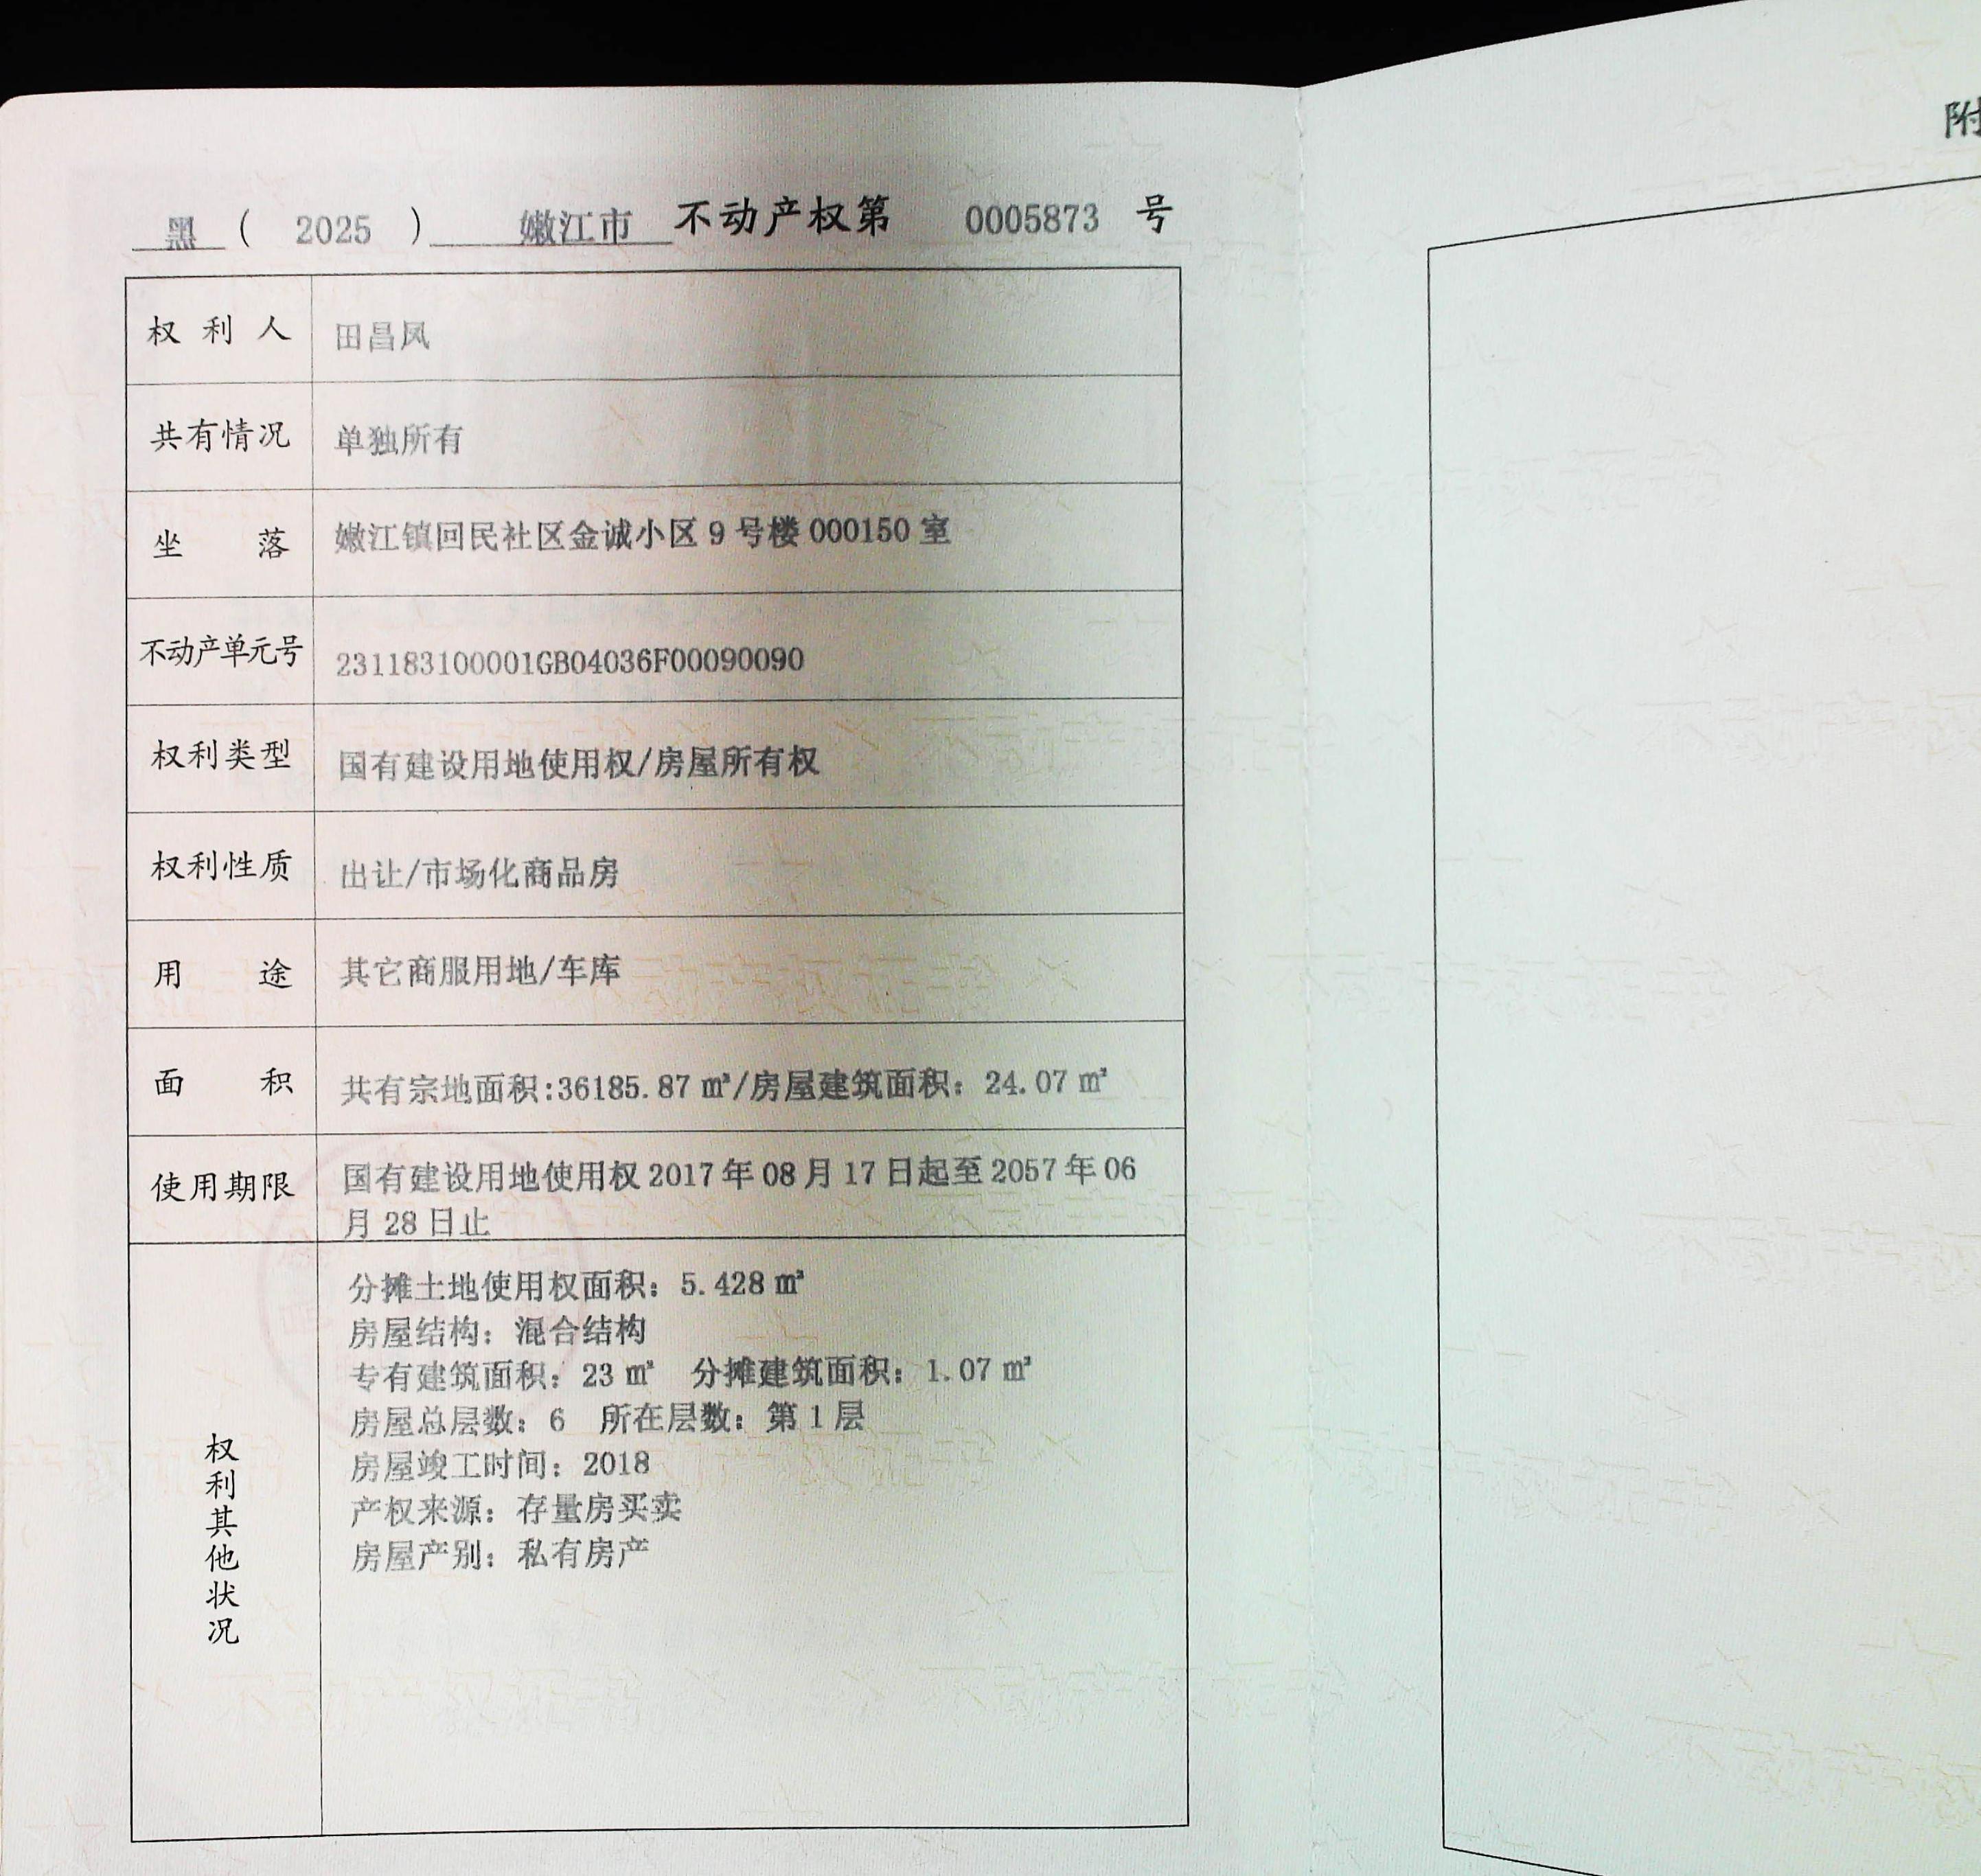 黑 ( 2025 ) 嫩江市 不动产权第 0005873 号
附
权利人 田昌凤
共有情况 单独所有
坐落 嫩江镇回民社区金诚小区 9 号楼 000150 室
不动产单元号 231183100001GB04036F00090090
权利类型 国有建设用地使用权/房屋所有权
权利性质 出让/市场化商品房
用途 其它商服用地/车库
面积 共有宗地面积:36185.87 ㎡/房屋建筑面积：24.07 ㎡
使用期限 国有建设用地使用权 2017 年 08 月 17 日起至 2057 年 06
月 28 日止
权利其他状况
分摊土地使用权面积：5.428 ㎡
房屋结构：混合结构
专有建筑面积：23 ㎡ 分摊建筑面积：1.07 ㎡
房屋总层数：6 所在层数：第 1 层
房屋竣工时间：2018
产权来源：存量房买卖
房屋产别：私有房产